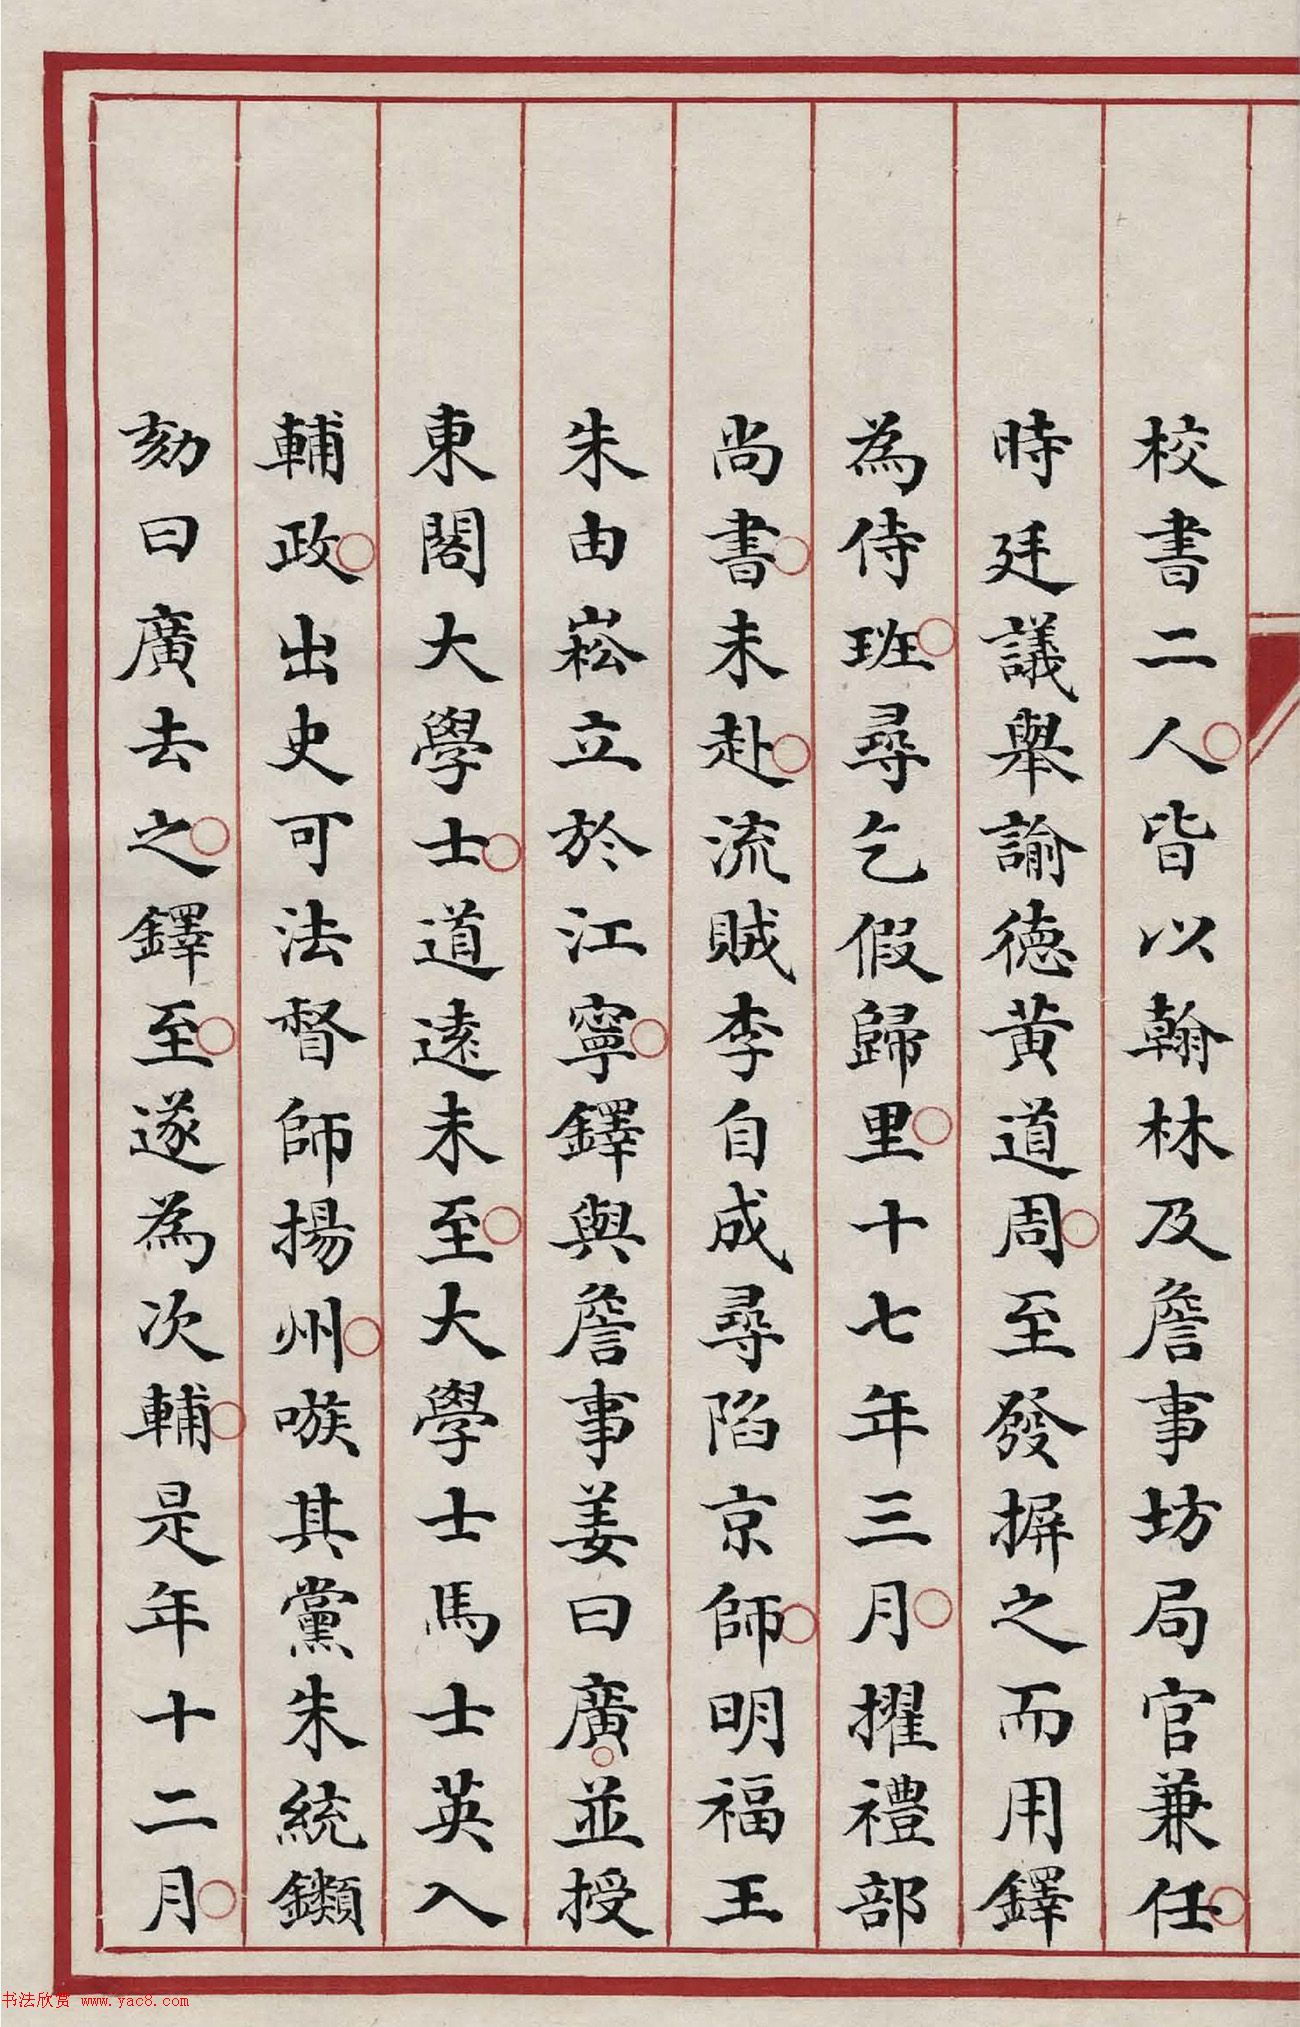 校書二人皆以翰林及詹事坊局官兼任
時廷議舉諭德黄道周至發摒之而用鐸
為侍班尋乞假歸里十七年三月擢禮部
尚書未赴流賊李自成尋陷京師明福王
朱由崧立於江寧鐸與詹事姜曰廣並授
東閣大學士道遠未至大學士馬士英入
輔政出史可法督師揚州嗾其黨朱統䥧
劾曰廣去之鐸至遂為次輔是年十二月
书法欣赏 www.yac8.com